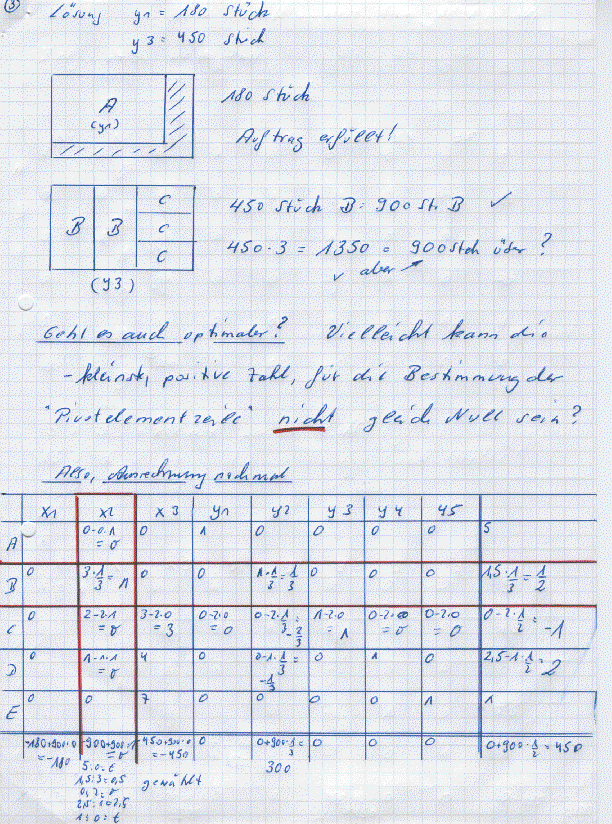 3
Lösung y1 = 180 Stück
y3 = 450 Stück
A
(y1)
180 Stück
Auftrag erfüllt!
B B C
C
C
(y3)
450 Stück B = 900 St. B ✓
450·3 = 1350 = 900 Stck über?
✓ aber
Geht es auch optimaler? Vielleicht kann die
- kleinste, positive Zahl, für die Bestimmung der
"Pivotelementzeile" nicht gleich Null sein?
Also, Ausrechnung nochmal
x1 x2 x3 y1 y2 y3 y4 y5
A 0-0·1 = 0 0 1 0 0 0 0 5
B 0 3·1/3 = 1 0 0 1·1/3 = 1/3 0 0 0 1,5·1/3 = 1/2
C 0 2-2·1 = 0 3-2·0 = 3 0-2·0 = 0 0-2·1/3 = -2/3 1-2·0 = 1 0-2·0 = 0 0-2·0 = 0 0-2·1/2 = -1
D 0 1-1·1 = 0 4 0 0-1·1/3 = -1/3 0 1 0 2,5-1·1/2 = 2
E 0 0 7 0 0 0 0 1 1
-180+900·0 = -180 -900+900·1 = 0 -450+900·0 = -450 0 0+900·1/3 = 300 0 0 0 0+900·1/2 = 450
1,5:3=0,5 gewählt
0:2=0
2,5:1=2,5